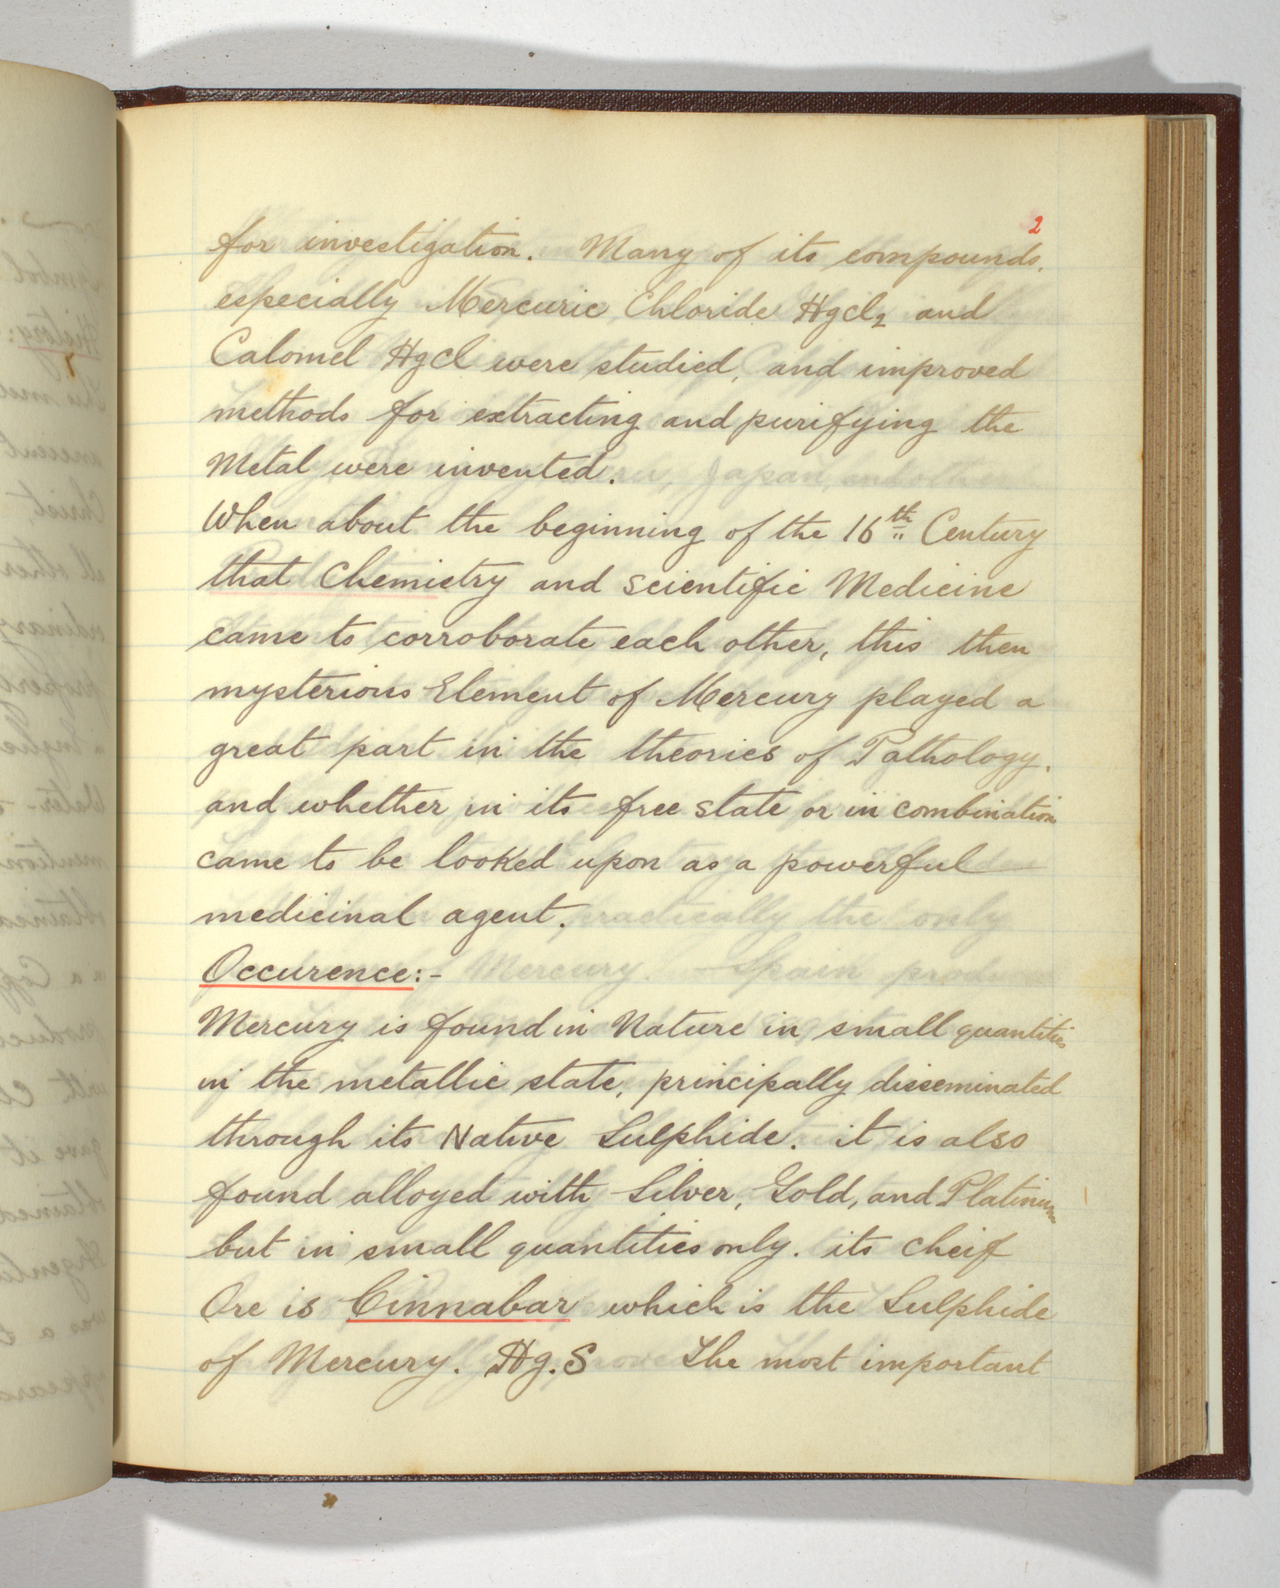 2
for investigation. Many of its compounds,
especially Mercuric Chloride HgCl2 and
Calomel HgCl were studied, and improved
methods for extracting and purifying the
Metal were invented.
When about the beginning of the 16th Century
that Chemistry and scientific Medicine
came to corroborate each other, this then
mysterious Element of Mercury played a
great part in the theories of Pathology,
and whether in its free state or in combination
came to be looked upon as a powerful
medicinal agent.
Occurence:-
Mercury is found in Nature in small quantities
in the metallic state, principally disseminated
through its Native Sulphide. it is also
found alloyed with Silver, Gold, and Platinum
but in small quantities only. its cheif
Ore is Cinnabar which is the Sulphide
of Mercury. Hg.S The most important